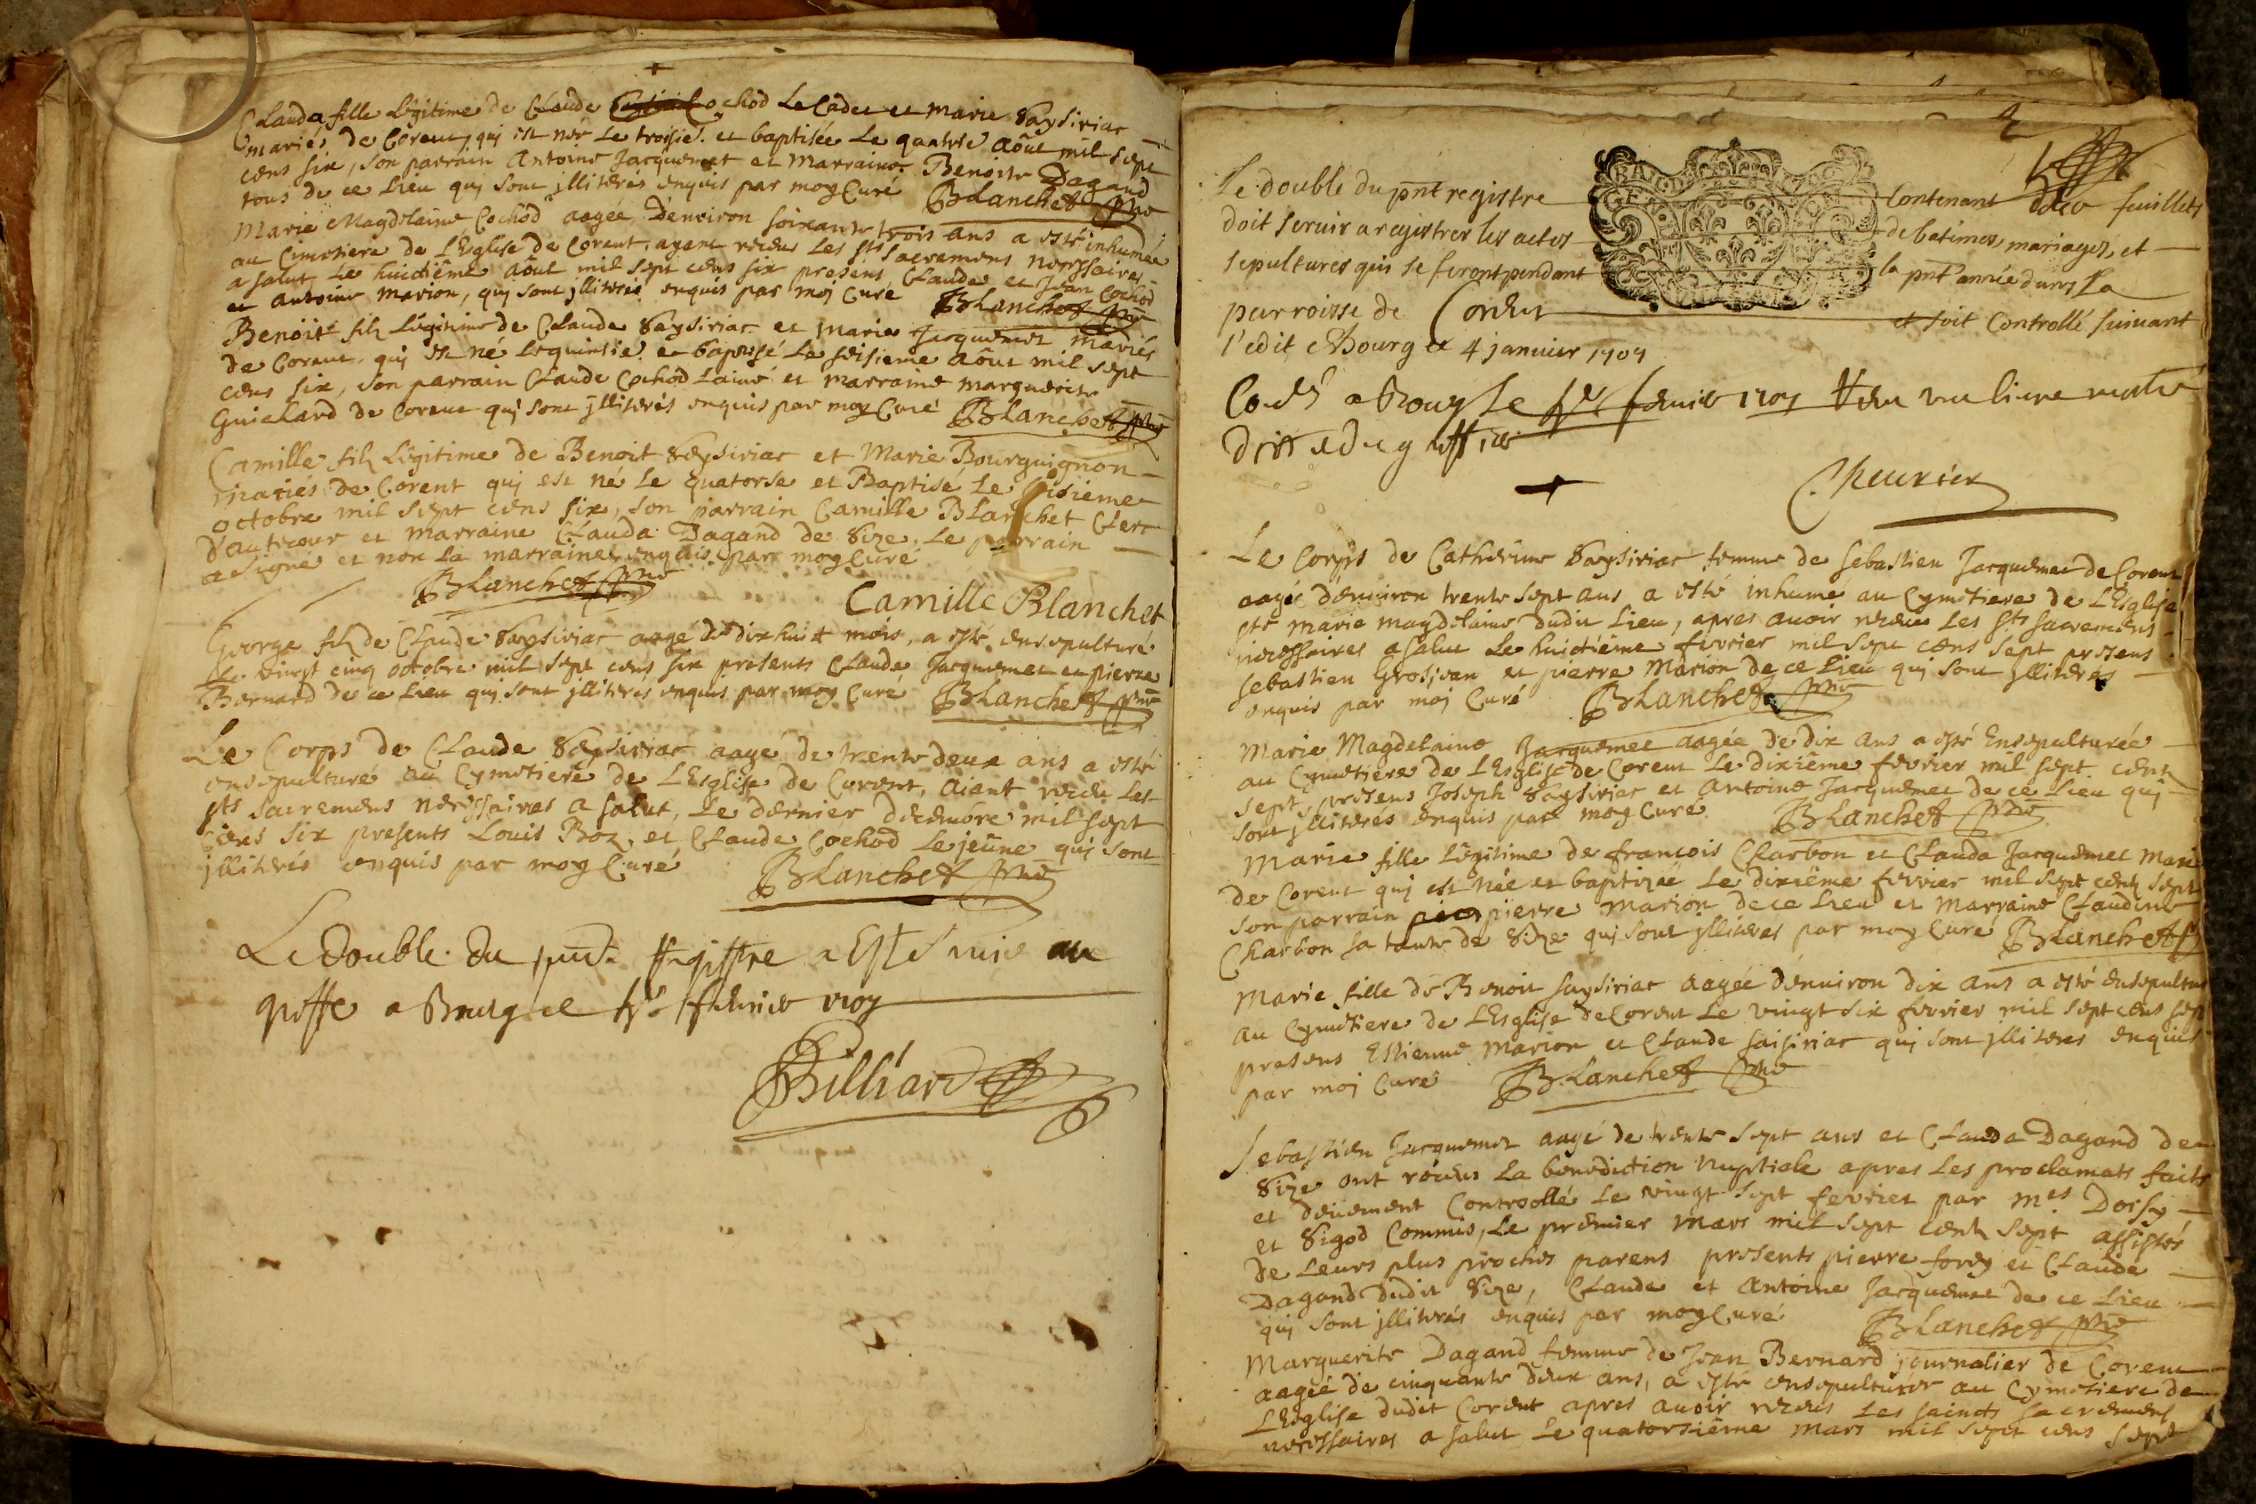 Clauda fille Légitime de Claude Cochod Le Cadet et marie Saysiriac
mariés de Corent, qui est née Le troisie. et baptisée Le quatrie aôut mil sept
cens six, son parrain Antoine Jacquemet et Marraine Benoite Dagand
tous de ce Lieu qui sont jlliterés enquis par moy Curé Blanchet ptre
Marie Magdelaine Cochod aagée d'environ soixante trois ans a esté inhumée
au Cimetiere de L'Eglise de Corent, ayant receu Les sts sacremens necessaires
a salut Le huictiême aôut mil sept cens six presens Claude et Jean Cochod
et antoine marion, qui sont jlliterés enquis par moj Curé Blanchet ptre
Benoist filz Légitime de Claude Saysiriac et marie Jacquemet mariés
de Corent, qui est né Le quinsie. et baptisé Le seisieme aôut mil sept
cens six, son parrain Claude Cochod Lainé et marraine marguerite
Guichard de Corent qui sont jlliterés enquis par moy Curé Blanchet ptre
Camille filz Légitime de Benoit Saysiriac et Marie Bourguignon
mariés de Corent qui est né Le quatorse et Baptisé Le sisieme
octobre mil sept cens six, son parrain Camille Blanchet Clerc
d'autecour et marraine Clauda Dagand de Size, Le parrain
a signé et non La marraine enquis par moy Curé
Blanchet ptre
Camille Blanchet
George filz de Claude Saysiriac aagé de dixhuit mois, a esté ensepulturé
Le vingt cinq octobre mil sept cens six presents Claude Jacquemet et pierre
Bernard de ce Lieu qui sont jlliterés enquis par moy Curé Blanchet ptre
Le Corps de Claude Saysiriac aagé de trente deux ans a esté
ensepulturé au Cymetiere de L'Esglise de Corent, aient receu Les
sts sacremens necessaires a salut, Le dernier decembre mil sept
cens six presents Louis Boz, et Claude Cochod Le jeûne qui sont
jlliterés enquis par moy Curé Blanchet ptre
Le double du pnt. Registre a Esté mis au
greffe a Bourg ce feburier 1707
Billiard
2
Le double du pnt registre contenant deux feuillets
doit seruir a registrer les actes de batimes, mariages, et
sepultures qui se feront pendant la pnt année dans La
parroisse de Corent et soit Controllé suiuant
l'edit A Bourg ce 4 januier 1707
a Bourg le feurier 1707
Cheurier
Le Corps de Catherine Saysiriac femme de Sebastien Jacquemet de Corent
aagée denuiron trente sept ans a esté inhumé au Cymetiere de L'Esglise
ste marie magdelaine dudit Lieu, apres auoir receu Les sts sacremens
necessaires a salut Le huictiême fevrier mil sept cens sept presens
sebastien Grosjean et pierre Marion de ce Lieu qui sont jlliterés
enquis par moj Curé Blanchet ptre
Marie Magdelaine Jacquemet aagée de dix ans a esté Ensepulturée
au Cymetiere de L'Esglise de Corent Le dixiême fevrier mil sept cens
sept, presens Joseph Saysiriac et Antoine Jacquemet de ce Lieu qui
sont jlliterés enquis par moy Curé Blanchet ptre
Marie fille Légitime de francois Charbon et Clauda Jacquemet Marie
de Corent qui est Née et baptizée Le dixiême fevrier mil sept cens sept
son parrain pierre Marion de ce Lieu et Marraine Claudine
Charbon sa tante de Size qui sont jlliterés par moy Curé Blanchet
Marie fille de Benoit saysiriac aagée denuiron dix ans a esté ensepultur
au Cymetiere de L'Esglise de Corent Le vingt six fevrier mil sept cens sept
presens Estienne Marion et Claude saisiriac qui sont jlliterés enquis
par moj Curé Blanchet ptre
Sebastien Jacquemet aagé de trente sept ans et Clauda Dagand de
Size ont receus La benediction Nuptiale apres Les proclamats faits
et deüement Controollé Le vingt sept fevrier par Mes Dorsy
et Sigod Commis, Le premier Mars mil sept cens sept assistés
de Leurs plus proches parens presents pierre forey et Claude
Dagand dudit Size, Claude et Antoine Jacquemet de ce Lieu
qui sont jlliterés enquis par moy Curé Blanchet ptre
Marguerite Dagand femme de Jean Bernard journalier de Corent
aagée de cinquante deux ans, a esté ensepulturée au Cymetiere de
L'Esglise dudit Corent apres auoir receus Les saincts sacremens
necessaires a salut Le quatorsiême Mars mil sept cens sept